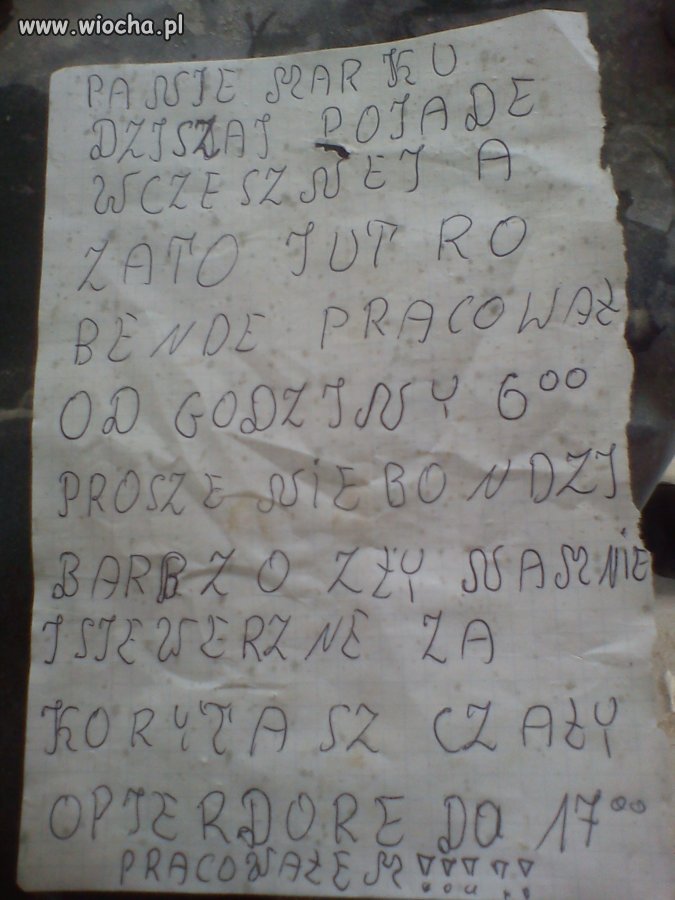 www.wiocha.pl
PANIE MARKU
DZISZAJ POJADE
WCZESZNEJ A
ZATO JUTRO
BENDE PRACOWAŁ
OD GODZINY 6⁰⁰
PROSZE NIEBONDZI
BARBZO ZŁY NAMNIE
ISIEWERZNE ZA
KORYTASZ CZAŁY
OPIERDORE DO 17⁰⁰
PRACOWAŁEM!!!!!